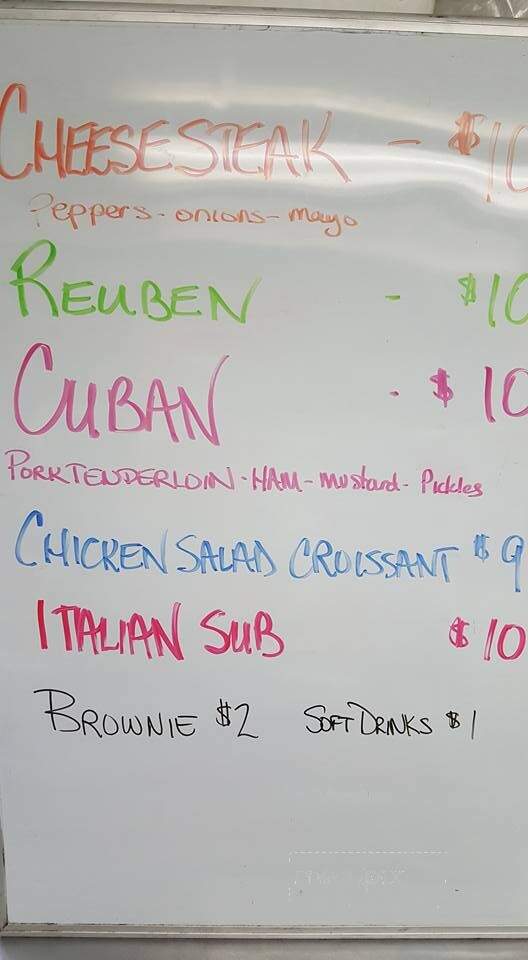 CHEESESTEAK - $10
Peppers - onions - mayo
REUBEN - $10
CUBAN - $10
PORK TENDERLOIN - HAM - mustard - Pickles
CHICKEN SALAD CROISSANT $9
ITALIAN SUB $10
BROWNIE $2 SOFT DRINKS $1